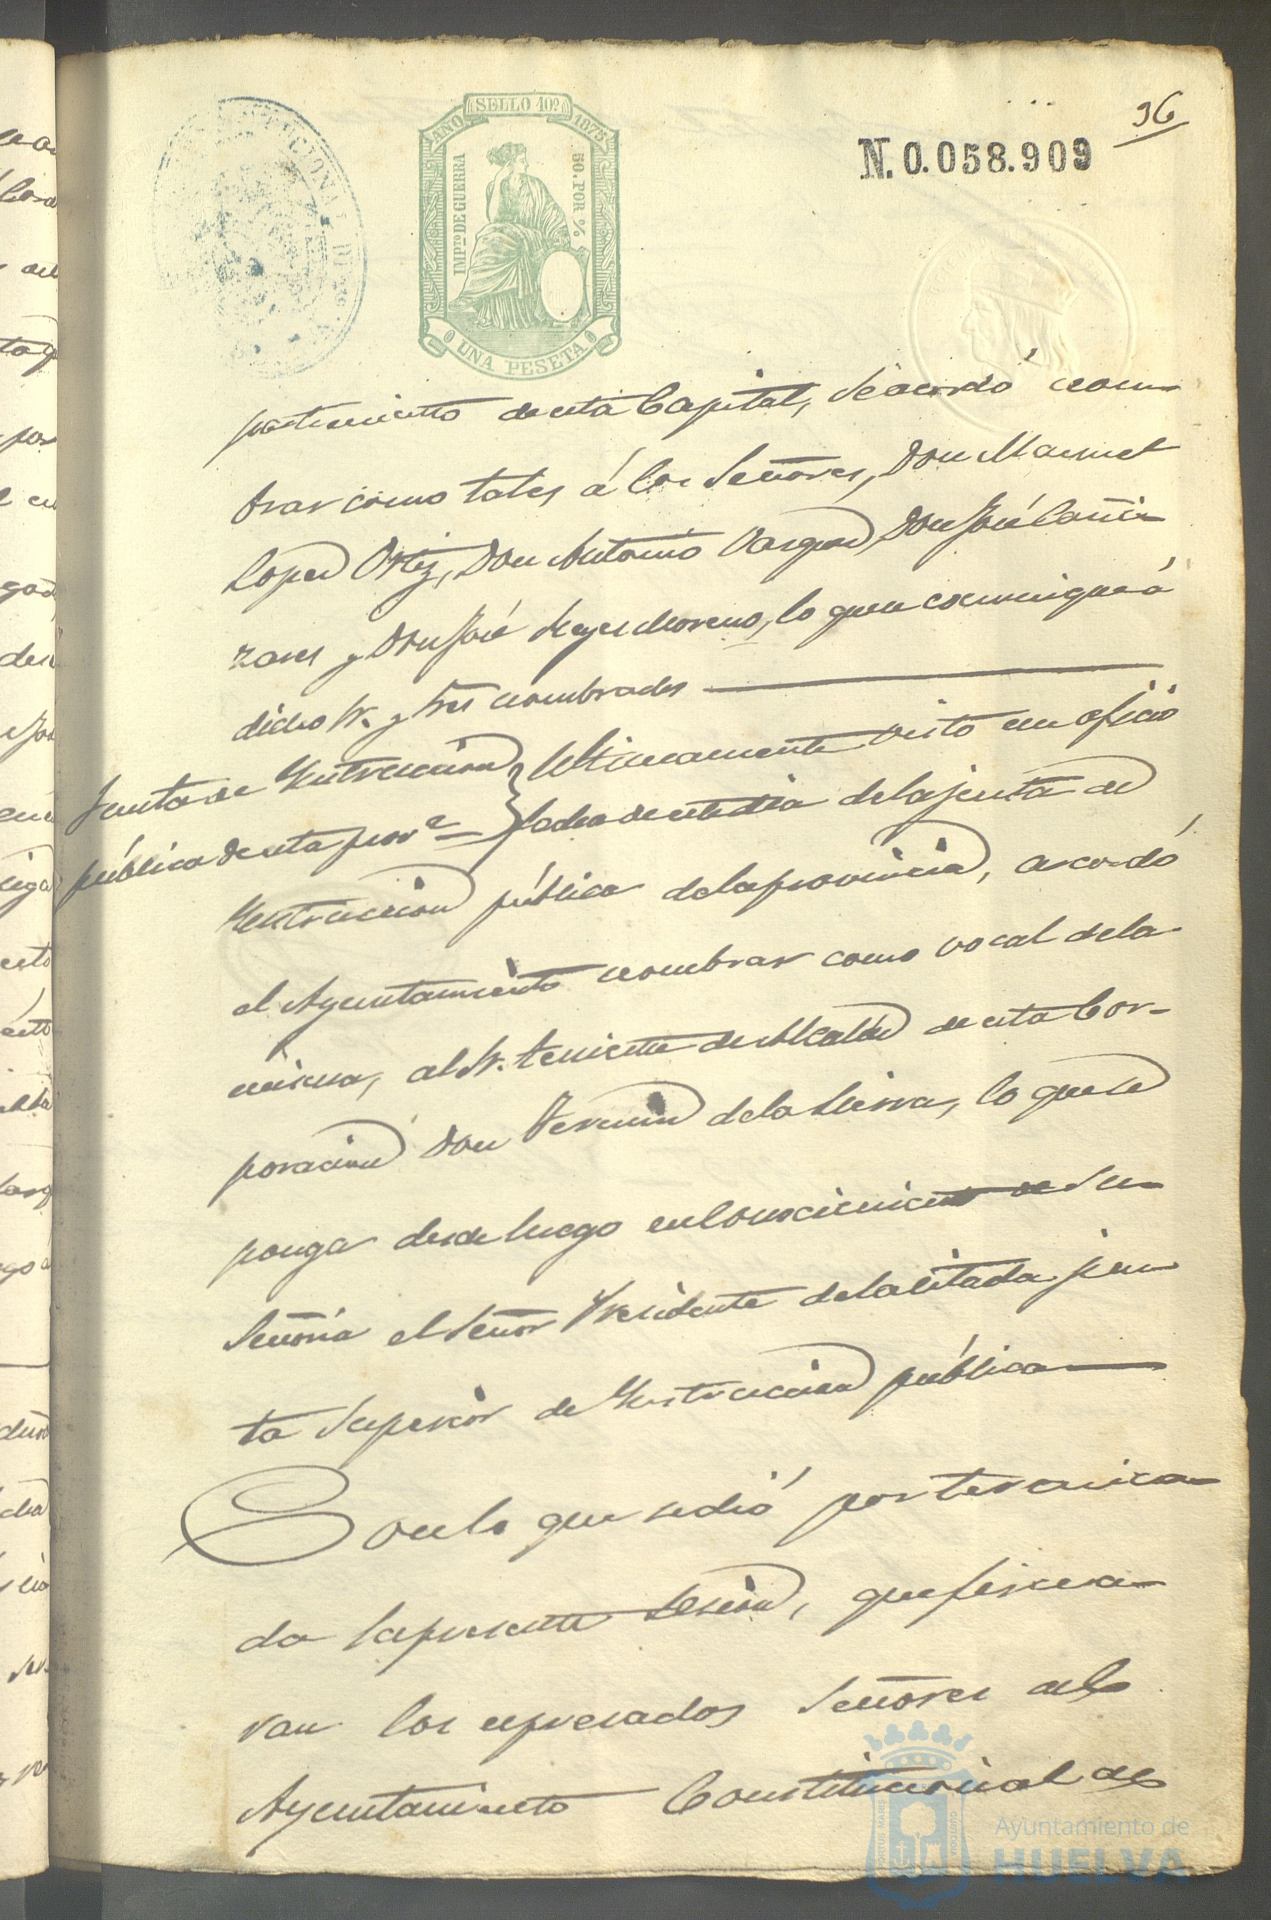 96
N.0.058.909
SELLO 10º
AÑO 1875
IMPTO DE GUERRA
50. POR %
UNA PESETA
partimiento de esta Capital, se acordó nom-
brar como tales á los Señores, Don Manuel
Lopez Ortiz, Don Antonio Vargas, Don José Cañi-
zares y Don José Reyes Moreno, lo que se comunique á
dicho Sr. y tres nombrados
Junta de Instruccion
pública de esta prova
Ultimamente visto un oficio
fecha de este dia de la junta de
Instruccion pública de la provincia, acordó
el Ayuntamiento nombrar como vocal de la
misma, al Sr. teniente de Alcalde de esta Cor-
poracion Don Fermin de la Sierra, lo que se
ponga desde luego en conocimiento de Su
Señoria el Señor Presidente de la citada jun
ta Superior de Instruccion pública
Con lo que se dió por termina-
da la presente sesion, que firma-
ran los espresados Señores del
Ayuntamiento Constitucional de
Ayuntamiento de
HUELVA